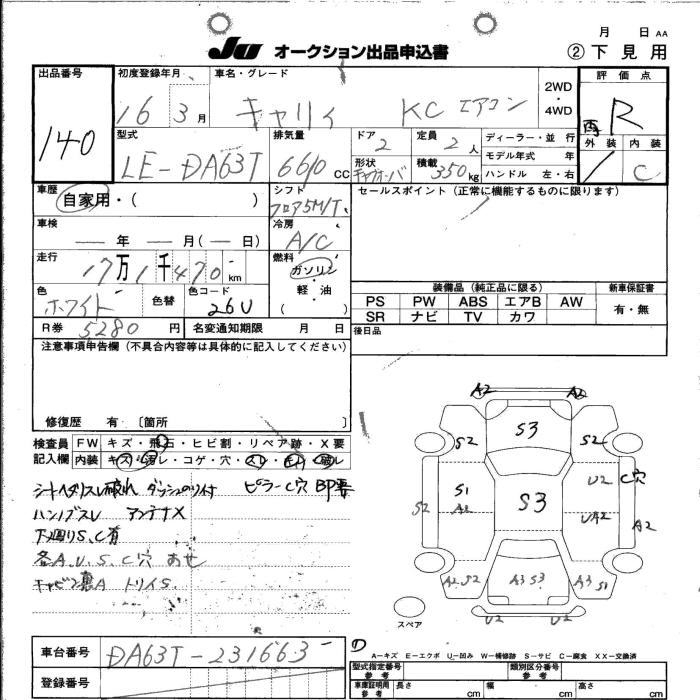 月 日 AA
JU オークション出品申込書 ②下見用
出品番号 初度登録年月 車名・グレード 2WD・4WD 評価点
140 16 3月 キャリイ KC エアコン 再 R
型式 排気量 ドア 定員 ディーラー・並行 外装 内装
LE-DA63T 660 CC 2 2人 モデル年式 年 C
形状 積載 350kg ハンドル 左・右
車歴 シフト セールスポイント (正常に機能するものに限ります)
自家用・( ) フロア5M/T
車検 冷房
年 月( 日) A/C
走行 燃料
17万1千470km ガソリン・軽油
色 色替 色コード ( )
ホワイト 26U
装備品 (純正品に限る) 新車保証書
PS PW ABS エアB AW 有・無
SR ナビ TV カワ
R券 5280円 名変通知期限 月 日 後日品
注意事項申告欄 (不具合内容等は具体的に記入してください)
修復歴 有 〔箇所 〕
検査員 FW キズ・飛石・ヒビ割・リペア跡・X要
記入欄 内装 キズ・汚レ・コゲ・穴・スレ・破レ
シートヘタリスレ破れ ダッシュのり付 ピラーC穴 BP要
ハンドルスレ アンテナX
下廻りS、C有
各A.U.S.C穴 あせ
キャビン裏A トリイS.
A2 A2
S2 S3 S2
S1 U2 C穴
S2 A2 S3 UA2 A2
A2 S2 A3 S3 A3 S1
U2 U2
スペア
車台番号 DA63T-231663
登録番号
A-キズ E-エクボ U-凹み W-補修跡 S-サビ C-腐食 XX-交換済
型式指定番号 参考 類別区分番号 参考
車庫証明用 参考 長さ cm 幅 cm 高さ cm